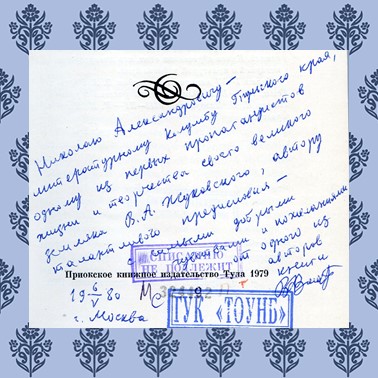 Николаю Александровичу —
литературному Колумбу Тульского края,
одному из первых пропагандистов
жизни и творчества своего великого
земляка В. А. Жуковского, автору
талантливого предисловия —
с самыми добрыми
чувствами и пожеланиями
от одного из
авторов
книги
СПИСАНИЮ
НЕ ПОДЛЕЖИТ
Приокское книжное издательство Тула 1979
19 6/V 80
г. Москва
ТУК "ТОУНБ"